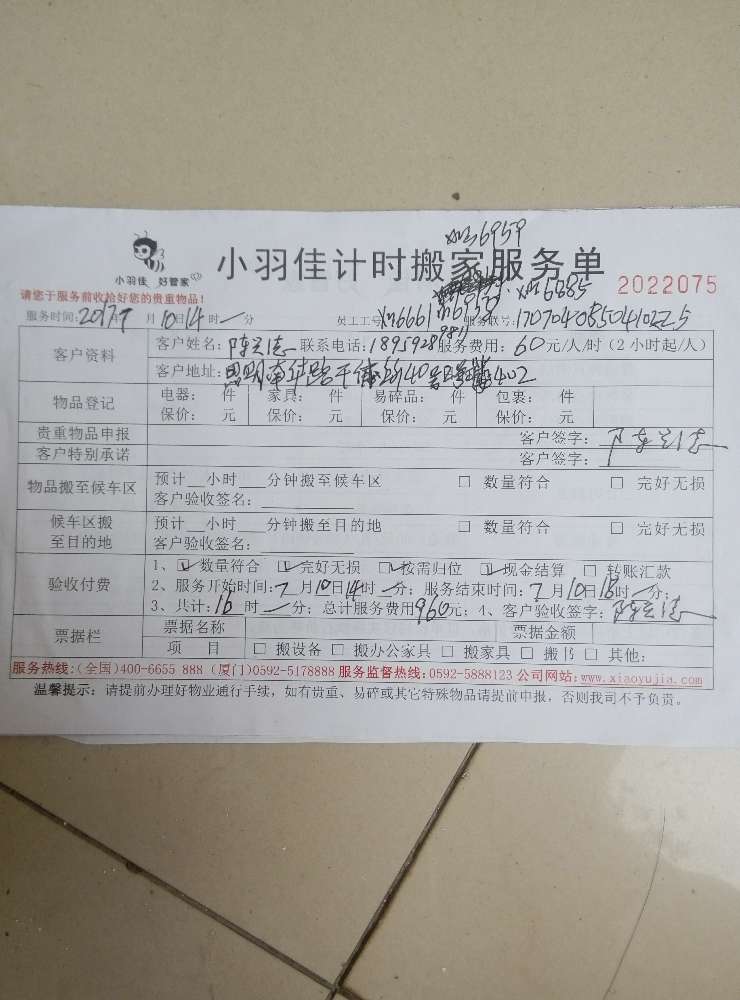 XM6959
小羽佳 好管家
小羽佳计时搬家服务单
2022075
请您于服务前收拾好您的贵重物品!
XM6885
服务时间:2017年7月10日14时一分 员工工号 XM6661 服务联号:
客户资料 客户姓名: 陈 志 联系电话: 服务费用: 60元/人/时(2小时起/人)
客户地址:思明南华路 40号 402
物品登记 电器: 件 家具: 件 易碎品: 件 包裹: 件
保价: 元 保价: 元 保价: 元 保价: 元
贵重物品申报 客户签字: 陈 志
客户特别承诺 客户签字:
物品搬至候车区 预计__小时__分钟搬至候车区 □ 数量符合 □ 完好无损
客户验收签名:
候车区搬至目的地 预计__小时__分钟搬至目的地 □ 数量符合 □ 完好无损
客户验收签名:
验收付费 1、☑数量符合 ☑完好无损 ☑按需归位 ☑现金结算 □ 转账汇款
2、服务开始时间:7月10日14时一分; 服务结束时间:7月10日18时一分;
3、共计:16时一分; 总计服务费用960元; 4、客户验收签字: 陈 志
票据栏 票据名称 票据金额
项 目 □ 搬设备 □ 搬办公家具 □ 搬家具 □ 搬书 □ 其他:
服务热线:(全国)400-6655 888 (厦门)0592-5178888 服务监督热线:0592-5888123 公司网站:www.xiaoyujia.com
温馨提示: 请提前办理好物业通行手续,如有贵重、易碎或其它特殊物品请提前申报,否则我司不予负责。